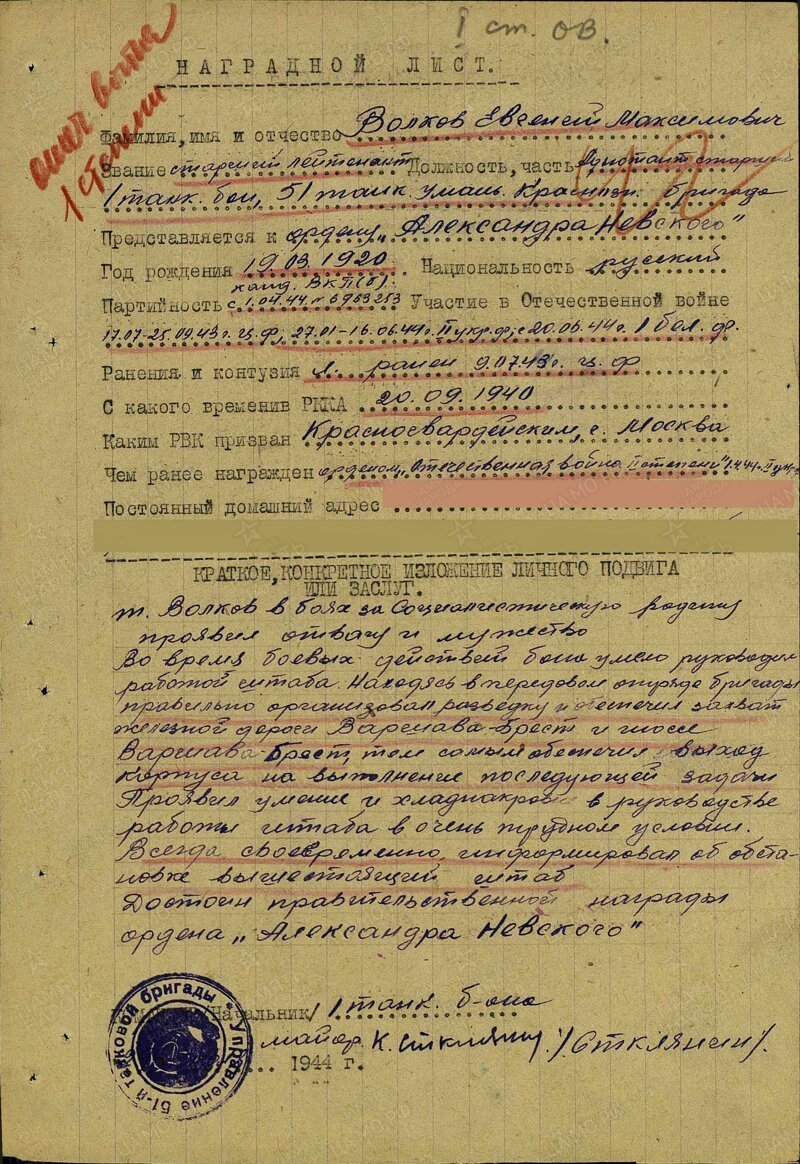 I ст. ОВ.
отеч война
1 степени
НАГРАДНОЙ ЛИСТ.
Фамилия, имя и отчество Волков Евгений Максимович
Звание старший лейтенант Должность, часть Адютант старший
1 танк. бон, 51 танк. умань. Бригада
Представляется к ордену „Александра Невского"
Год рождения 19.03.1920 Национальность русский
канд. ВКП(б).
Партийность с 1.04.44. № 6963253 Участие в Отечественной войне
17.07-25.09.43г. ц.ф; 27.01-16.06.44г. II укр.ф; с 20.06.44г. 1 бел. ф.
Ранения и контузия л. ранен 9.07.43г. ц. ф
С какого временив РККА 20.09.1940
Каким РВК призван Красногвардейским, г. Москва
Чем ранее награжден орденом „Отечественная война II степени"
Постоянный домашний адрес
КРАТКОЕ, КОНКРЕТНОЕ ИЗЛОЖЕНИЕ ЛИЧНОГО ПОДВИГА
ИЛИ ЗАСЛУГ.
т. Волков в боях за Социалистическую родину
проявил отвагу и мужество
Во время боевых действий бона умело руководил
работой штаба. Находясь в передовом отряде бригады
правильно организовал разведку и обеспечил захват
железной дороги Варшава-Брест и шоссе
Варшава-Брест, тем самым обеспечил выход
корпуса на выполнение последующей задачи
Проявил умение и хладнакровие в руководстве
работы штаба в очень трудном условии.
Всегда своевременно информировал об обста-
новке вышестоящий штаб
Достоин правительственной награды
ордена „Александра Невского"
/Начальник/ 1 танк. б-она
майор /Стклянин/.
1944 г.
Управление 51-й танковой бригады